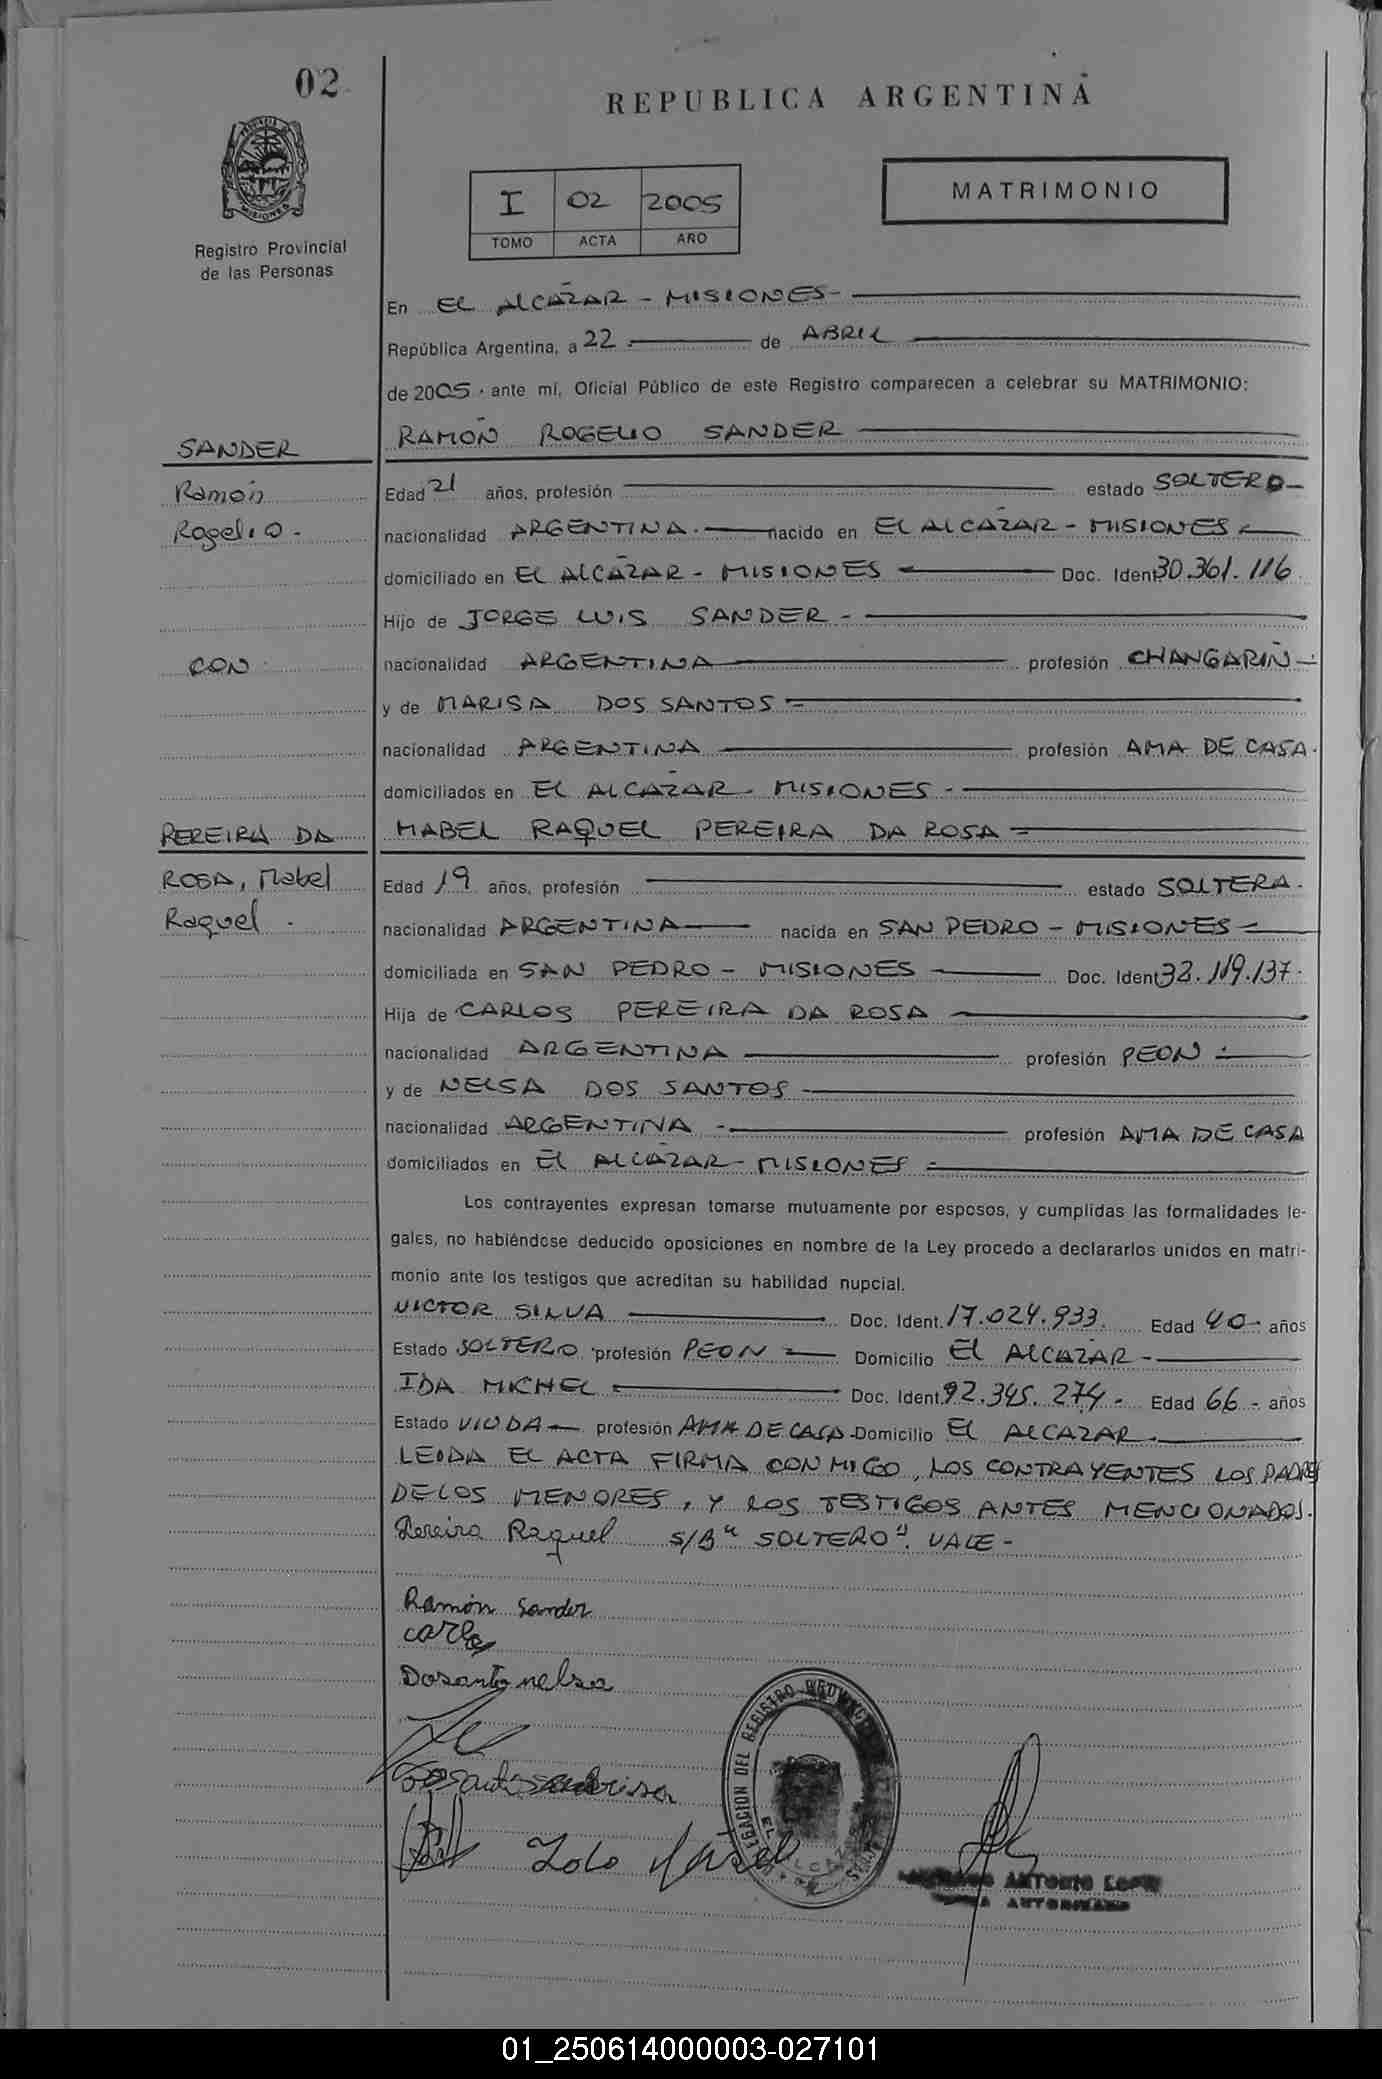 02
REPUBLICA ARGENTINA
PROVINCIA DE MISIONES
Registro Provincial
de las Personas
I 02 2005
TOMO ACTA AÑO
MATRIMONIO
En EL ALCAZAR - MISIONES -
República Argentina, a 22 de ABRIL
de 2005 . ante mí, Oficial Público de este Registro comparecen a celebrar su MATRIMONIO:
SANDER
RAMÓN ROGELIO SANDER
Ramón
Edad 21 años, profesión estado SOLTERO -
Rogelio -
nacionalidad ARGENTINA . nacido en EL ALCAZAR - MISIONES -
domiciliado en EL ALCAZAR - MISIONES Doc. Ident 30.361.116
Hijo de JORGE LUIS SANDER -
CON
nacionalidad ARGENTINA profesión CHANGARIN -
y de MARISA DOS SANTOS -
nacionalidad ARGENTINA profesión AMA DE CASA .
domiciliados en EL ALCAZAR - MISIONES -
PEREIRA DA
MABEL RAQUEL PEREIRA DA ROSA -
ROSA, Mabel
Edad 19 años, profesión estado SOLTERA .
Raquel .
nacionalidad ARGENTINA nacida en SAN PEDRO - MISIONES -
domiciliada en SAN PEDRO - MISIONES Doc. Ident 32.119.137 .
Hija de CARLOS PEREIRA DA ROSA
nacionalidad ARGENTINA profesión PEON -
y de NELSA DOS SANTOS
nacionalidad ARGENTINA - profesión AMA DE CASA
domiciliados en EL ALCAZAR - MISIONES -
Los contrayentes expresan tomarse mutuamente por esposos, y cumplidas las formalidades le-
gales, no habiéndose deducido oposiciones en nombre de la Ley procedo a declararlos unidos en matri-
monio ante los testigos que acreditan su habilidad nupcial.
VICTOR SILVA Doc. Ident. 17.024.933. Edad 40 - años
Estado SOLTERO profesión PEON - Domicilio EL ALCAZAR -
IDA MICHEL Doc. Ident. 92.345.274 - Edad 66 - años
Estado VIUDA - profesión AMA DE CASA Domicilio EL ALCAZAR .
LEIDA EL ACTA FIRMA CONMIGO, LOS CONTRAYENTES LOS PADRES
DE LOS MENORES, Y LOS TESTIGOS ANTES MENCIONADOS.
Pereira Raquel S/B "SOLTERO". VALE -
Ramón Sander
carlos
Dosanto nelsa
DELEGACION DEL REGISTRO PROVINCIAL
EL ALCAZAR
ANTONIO
01_250614000003-027101